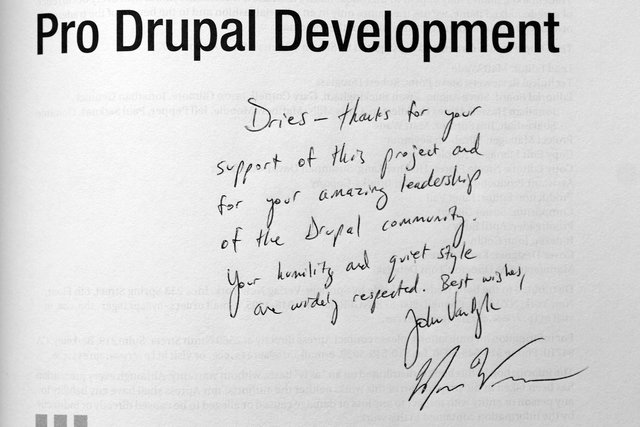 Pro Drupal Development
Dries – thanks for your
support of this project and
for your amazing leadership
of the Drupal community.
Your humility and quiet style
are widely respected. Best wishes,
John VanDyk